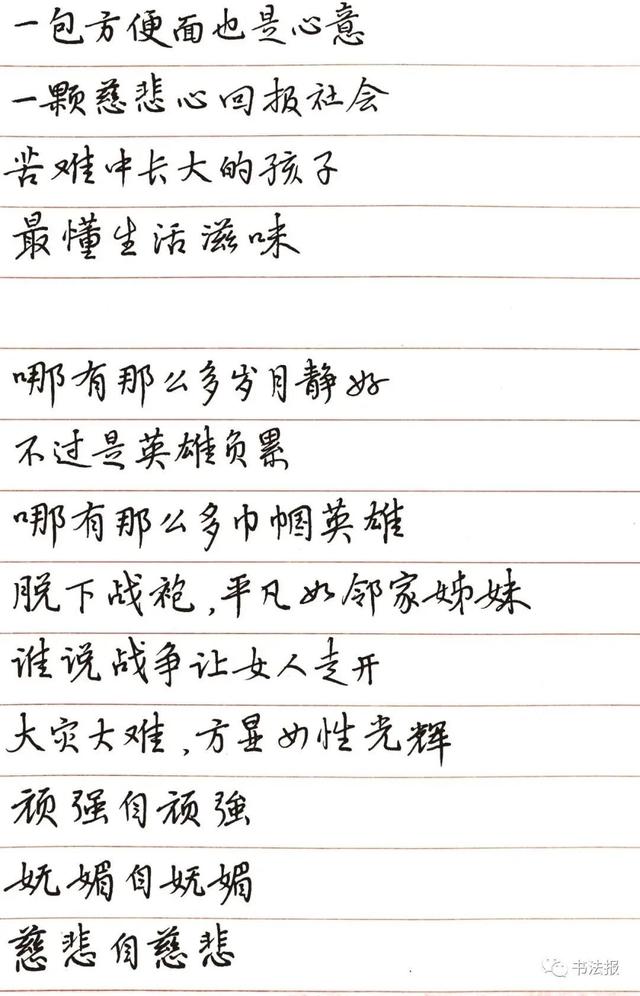 一包方便面也是心意
一颗慈悲心回报社会
苦难中长大的孩子
最懂生活滋味
哪有那么多岁月静好
不过是英雄负累
哪有那么多巾帼英雄
脱下战袍,平凡如邻家姊妹
谁说战争让女人走开
大灾大难,方显女性光辉
顽强自顽強
妩媚自妩媚
慈悲自慈悲
书法报